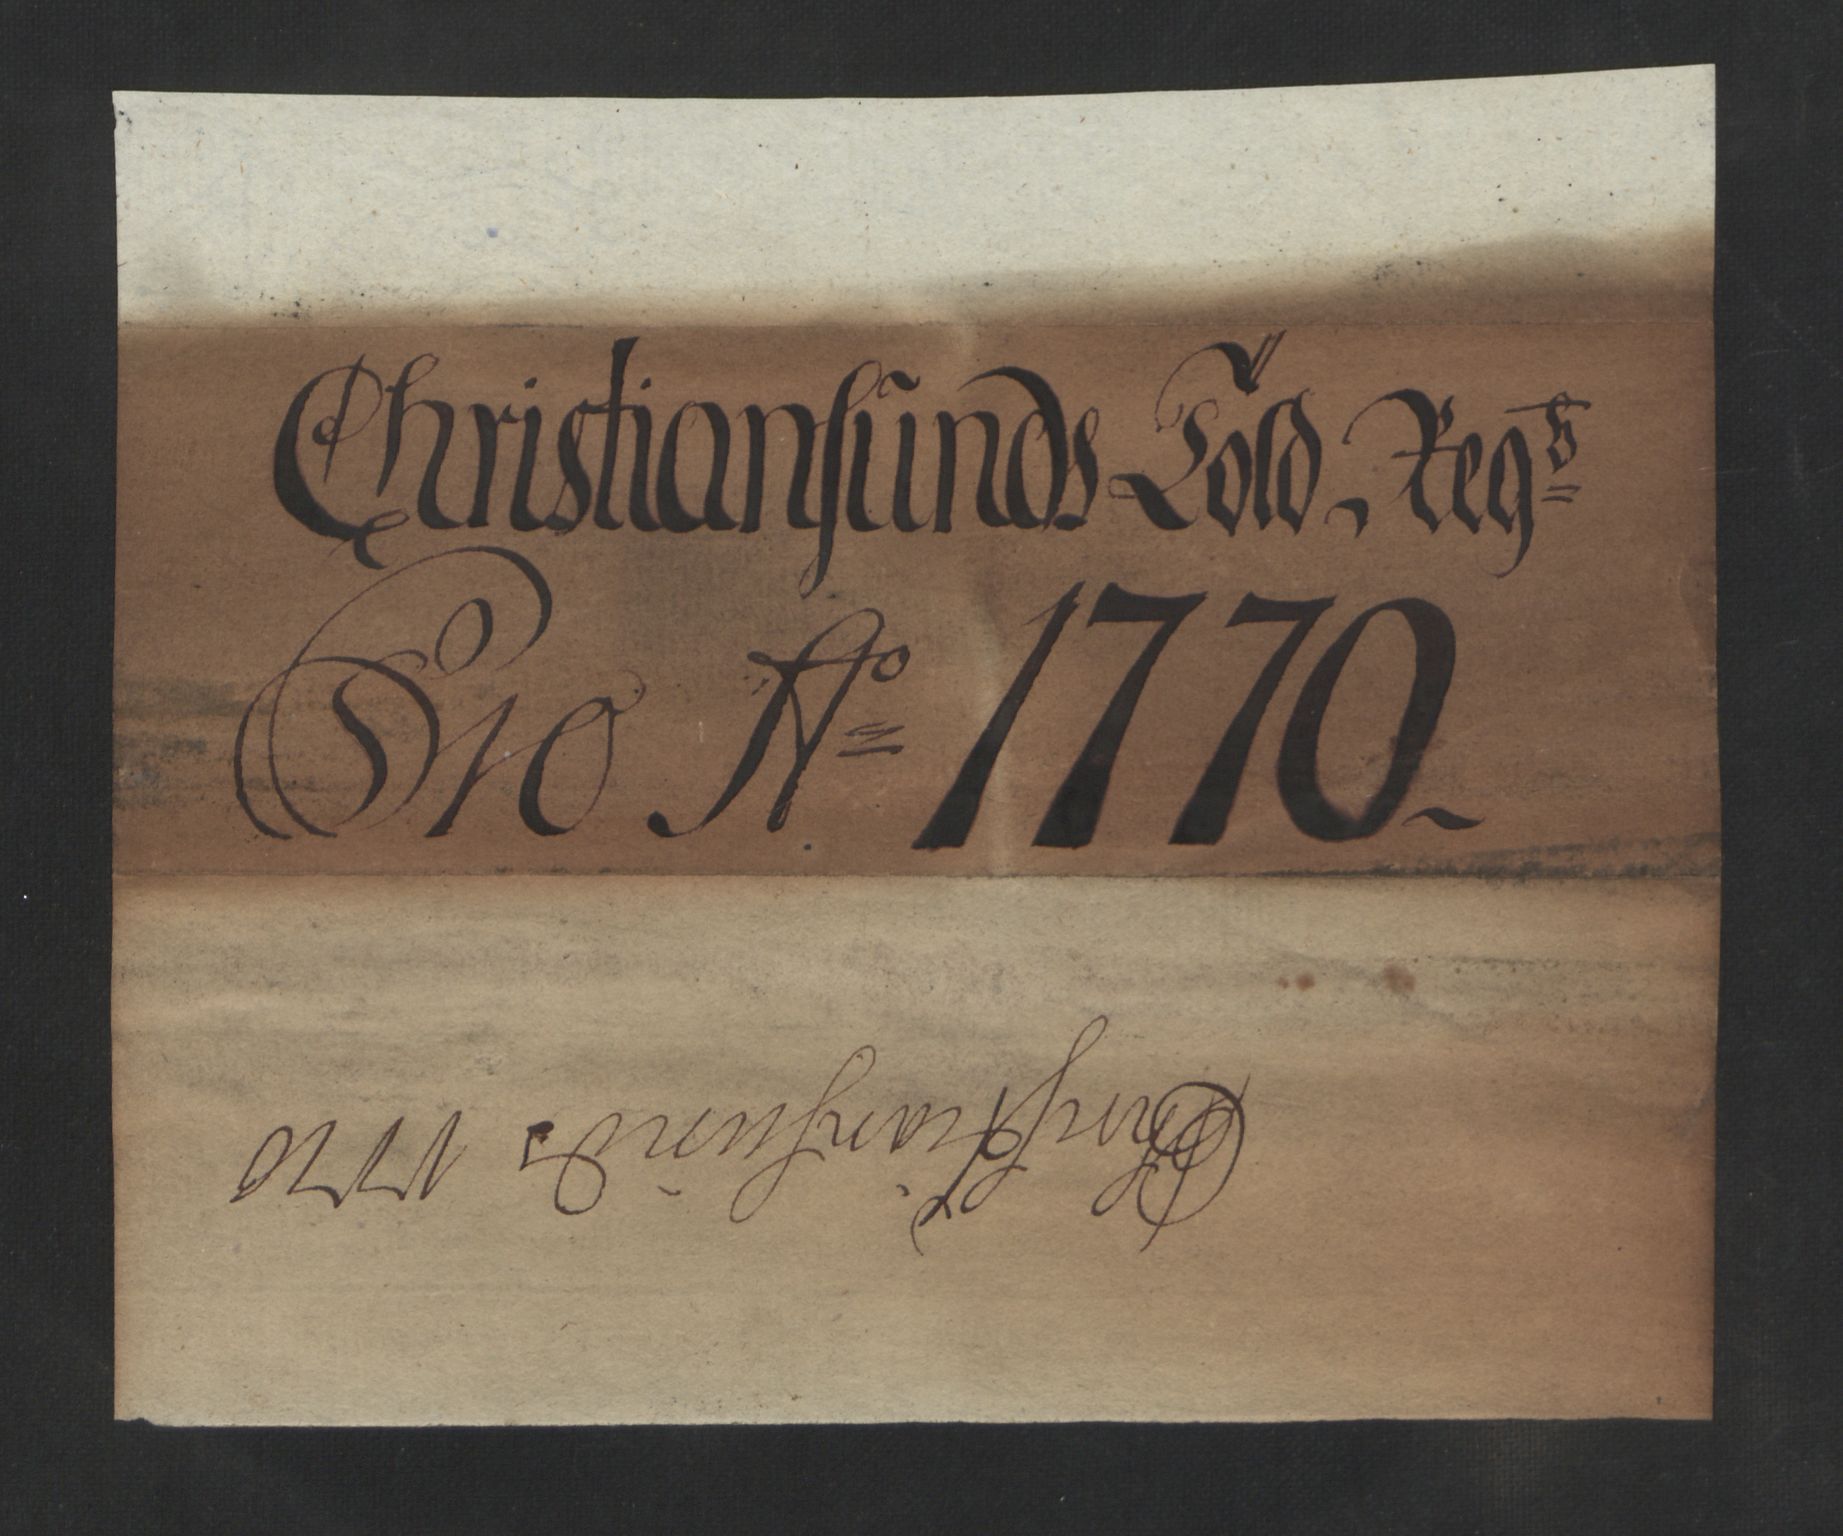 Christiansunds Told Regb
Pro Ao 1770
Christiansunds 1770